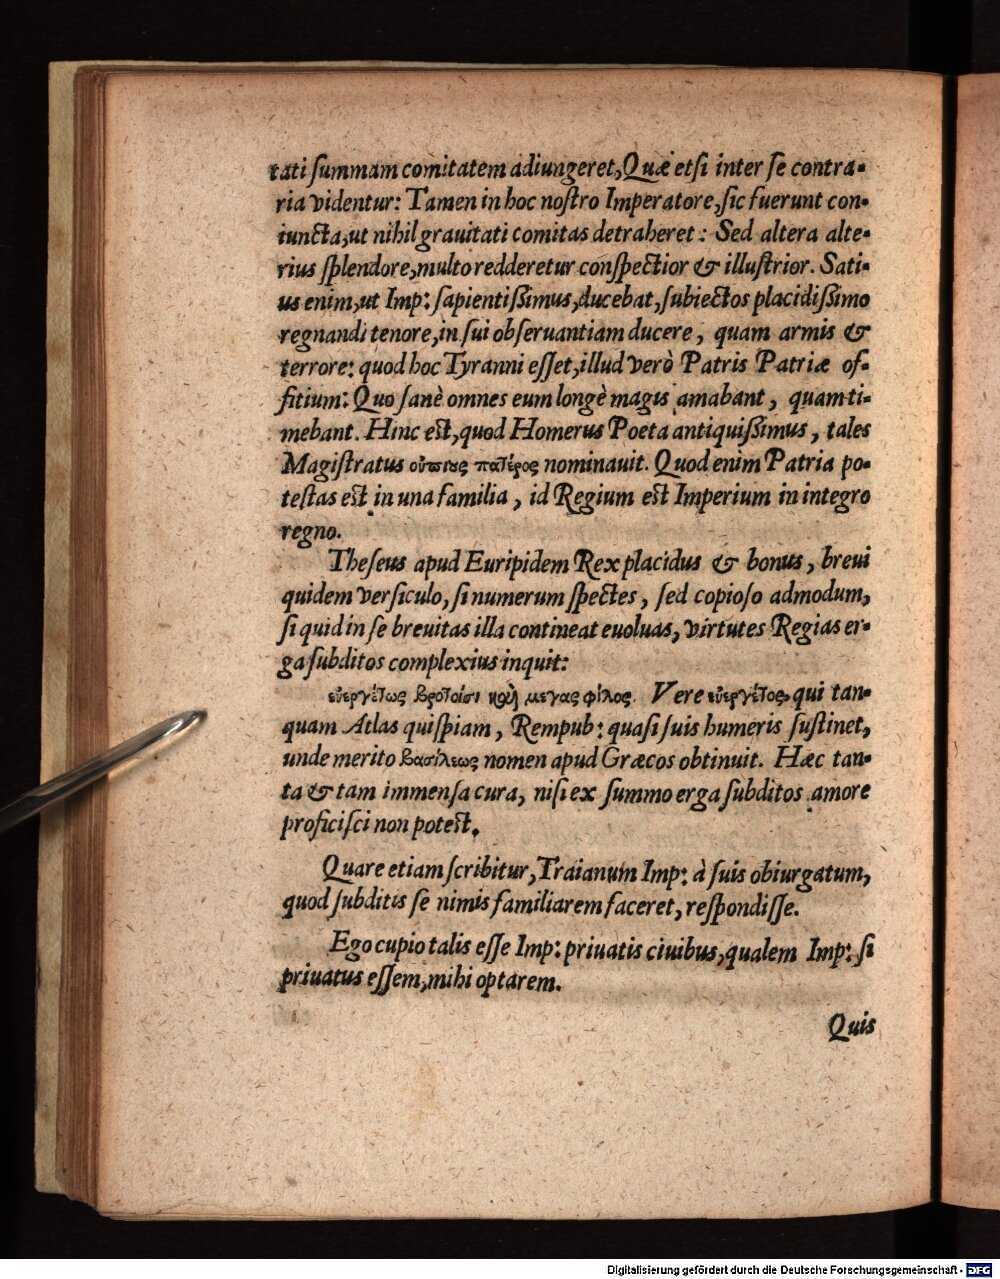 tati ſummam comitatem adiungeret, Quæ etſi inter ſe contra-
ria videntur: Tamen in hoc noſtro Imperatore, ſic fuerunt con-
iuncta, ut nihil grauitati comitas detraheret: Sed altera alte-
rius ſplendore, multo redderetur conſpectior & illuſtrior. Sati-
us enim, ut Imp: ſapientiſsimus, ducebat, ſubiectos placidiſsimo
regnandi tenore, in ſui obſeruantiam ducere, quam armis &
terrore: quod hoc Tyranni eſſet, illud verò Patris Patriæ of-
fitium: Quo ſanè omnes eum longè magis amabant, quam ti-
mebant. Hinc eſt, quod Homerus Poeta antiquiſsimus, tales
Magiſtratus πατέρος nominauit. Quod enim Patria po-
teſtas eſt in una familia, id Regium eſt Imperium in integro
regno.
Theſeus apud Euripidem Rex placidus & bonus, breui
quidem verſiculo, ſi numerum ſpectes, ſed copioſo admodum,
ſi quid in ſe breuitas illa contineat euoluas, virtutes Regias er-
ga ſubditos complexius inquit:
εὐεργέτως βροτοίσι καὶ μεγας φίλος. Vere εὐεργέτος, qui tan-
quam Atlas quiſpiam, Rempub: quaſi ſuis humeris ſuſtinet,
unde merito βασίλεως nomen apud Græcos obtinuit. Hæc tan-
ta & tam immenſa cura, niſi ex ſummo erga ſubditos amore
proficiſci non poteſt.
Quare etiam ſcribitur, Traianum Imp: à ſuis obiurgatum,
quod ſubditis ſe nimis familiarem faceret, reſpondiſſe.
Ego cupio talis eſſe Imp: priuatis ciuibus, qualem Imp: ſi
priuatus eſſem, mihi optarem.
Quis
Digitalisierung gefördert durch die Deutsche Forschungsgemeinschaft - DFG